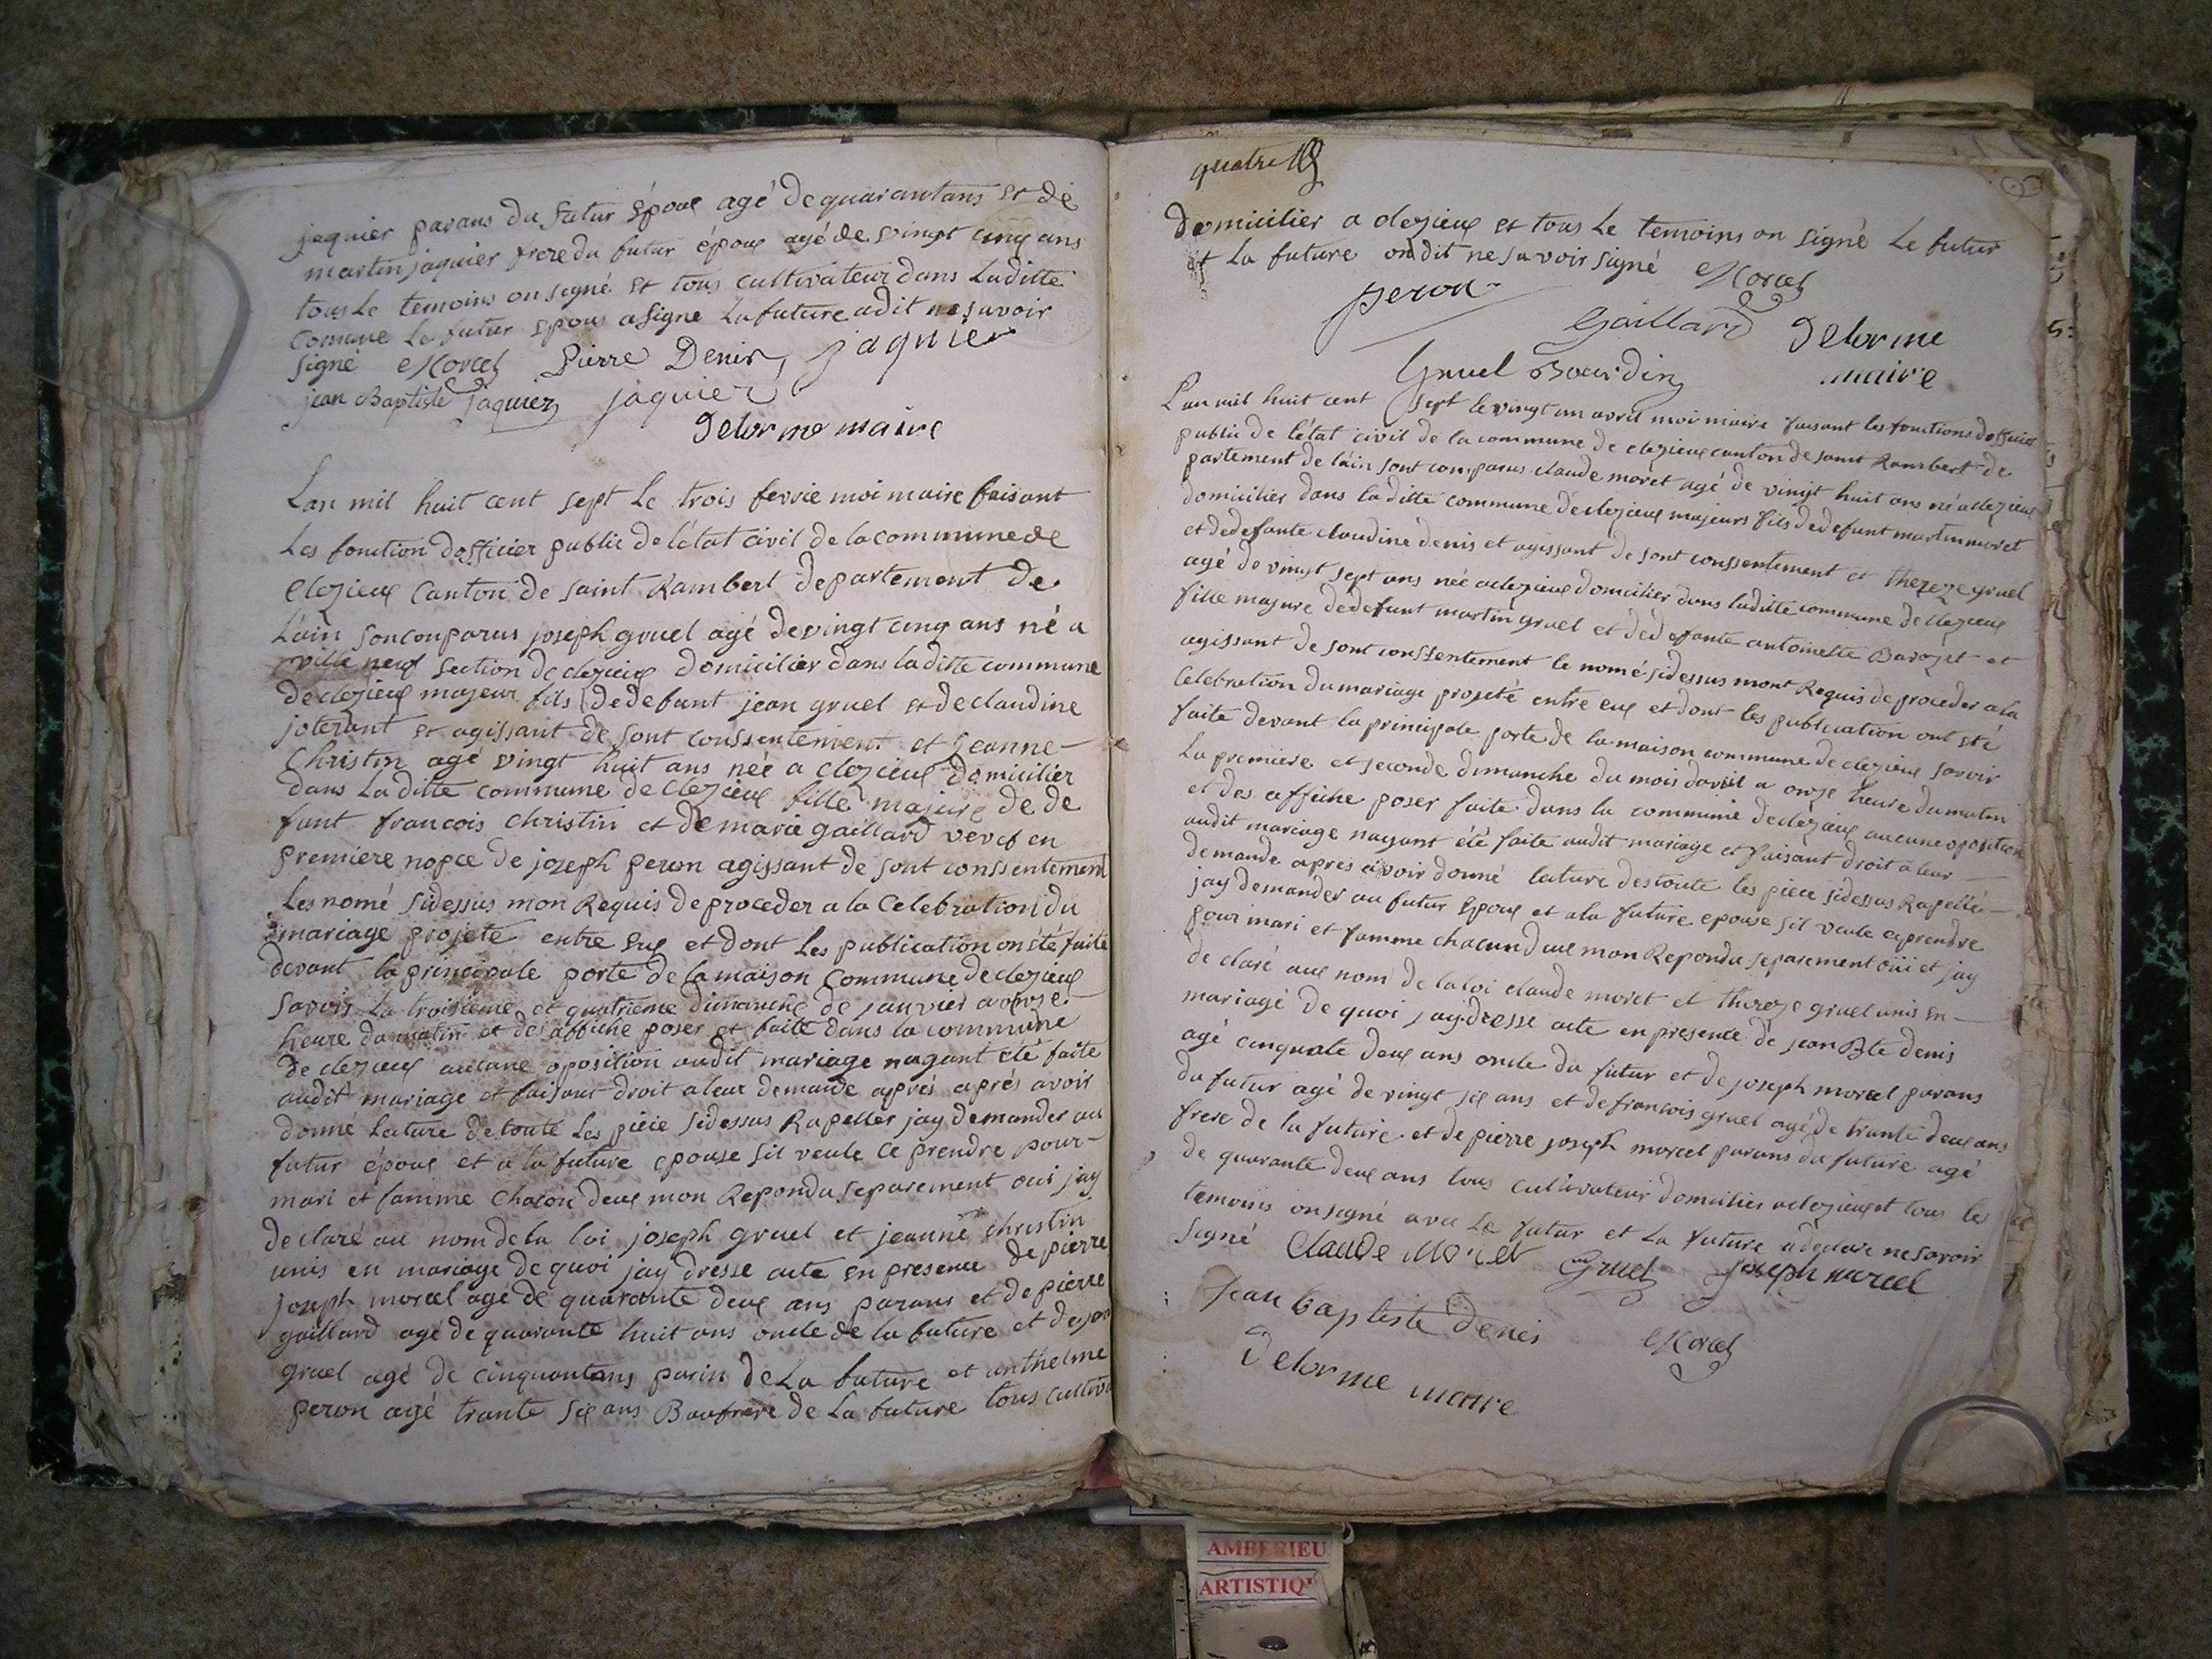 jaquier parans du futur époux agé de quarantans et de
martin jaquier frere du futur époux agé de vingt cinq ans
tous le temoins on signé et tous cultivateur dans laditte
comune le futur epous a signe la future adit ne savoir
signé Morcel Pierre Denis, jaquier
jean Baptiste jaquier jaquier
Delorme maire
Lan mil huit cent sept le trois fevrié moi maire faisant
les fonction dofficier public de létat civil de la commune de
clezieux canton de saint Rambert departement de
lain son conparus joseph gruel agé de vingt cinq ans né a
ville neuf section de clezieux domicilier dans laditte commune
de clezieux majeur fils de defunt jean gruel et de claudine
joterant et agissant de sont conssentement et jeanne
Christin agé vingt huit ans née a clezieux domicilier
dans la ditte commune de clezieux fille majeure de de
funt francois christin et de marie gaillard vevet en
premiere nopce de jozeph peron agissant de sont conssentement
les nomé sidessus mon Requis de proceder a la Celebration du
mariage projeté entre eux et dont les publication on été faite
devant la principale porte de la maison Commune de clezieux
savoir la troisieme et quatrieme dimanche de janvier a onze
heure du matin et des affiche poser et faite dans la commune
de clezieux aucune oposition audit mariage nayant été faite
audit mariage et faisant droit a leur demande aprés aprés avoir
donné lecture de toute les piéce sidessus Rapeller jay demander au
futur époux et a la future epouse sil veule ce prendre pour
mari et famme chacun deux mon Repondu separement oui jay
declaré au nom de la loi joseph gruel et jeanne christin
unis en mariage de quoi jay dresse acte en presence de pierre
joseph morcel agé de quarante deux ans parans et de pierre
gaillard agé de quarante huit ans oncle de la future et de
gruel agé de cinquantans parin de la future et anthelme
peron agé trante six ans Baufrere de la future tous cultiva
quatre
domicilier a clezieux et tous le temoins on signé le futur
et la future on dit ne savoir signé Morcel
peron
Gaillard Delorme
Gruel Bourdin maire
Lan mil huit cent sept le vingt un avril moi maire faisant les fonctions dofficier
public de létat civil de la commune de clezieux canton de saint Rambert de
partement de láin sont comparus claude moret agé de vingt huit ans né a clezieux
domicilier dans la ditte commune de clezieux majeurs fils de defunt martin moret
et de defunte claudine denis et agissant de sont conssentement et therezegruel
agé de vingt sept ans née a clezieux domicilier dans laditte commune de clezieux
fille majure de defunt martin gruel et de deffante antoinette Barozet et
agissant de sont conssentement le nomé sidessus mont Requis de proceder a la
Celebration du mariage projeté entre eux et dont les publication ont été
faite devant la principale porte de la maison commune de clezieux savoir
la premiere et seconde dimanche du mois davril a onze heure du matin
et des affiche poser faite dans la commune de clezieux aucune oposition
audit mariage nayant été faite audit mariage et faisant droit a leur
demande apres avoir donné lecture des toute les piece sidessus Rapellé
jay demander au futur epoux et a la future epouse sil veule ceprendre
pour mari et famme chacun deux mon Repondu separement oüi et jay
de claré aux nom de la loi claude moret et thereze gruel unis en
mariagé de quoi jay dresse acte en presence de jean Bte denis
agé cinquate deux ans oncle du futur et de joseph morcel parans
du futur agé de vingt six ans et de francois gruel agé de trante deux ans
frere de la future et de pierre joseph morcel parans du future agé
de quarante deux ans tous cultivateur domicilier a clezieux et tous les
temoins on signé avec le futur et la future a declare ne savoir
signé Claude Moret Gruel Joseph morcel
Jean baptiste denis Morcel
Delorme maire
AMBERIEU
ARTISTIQ